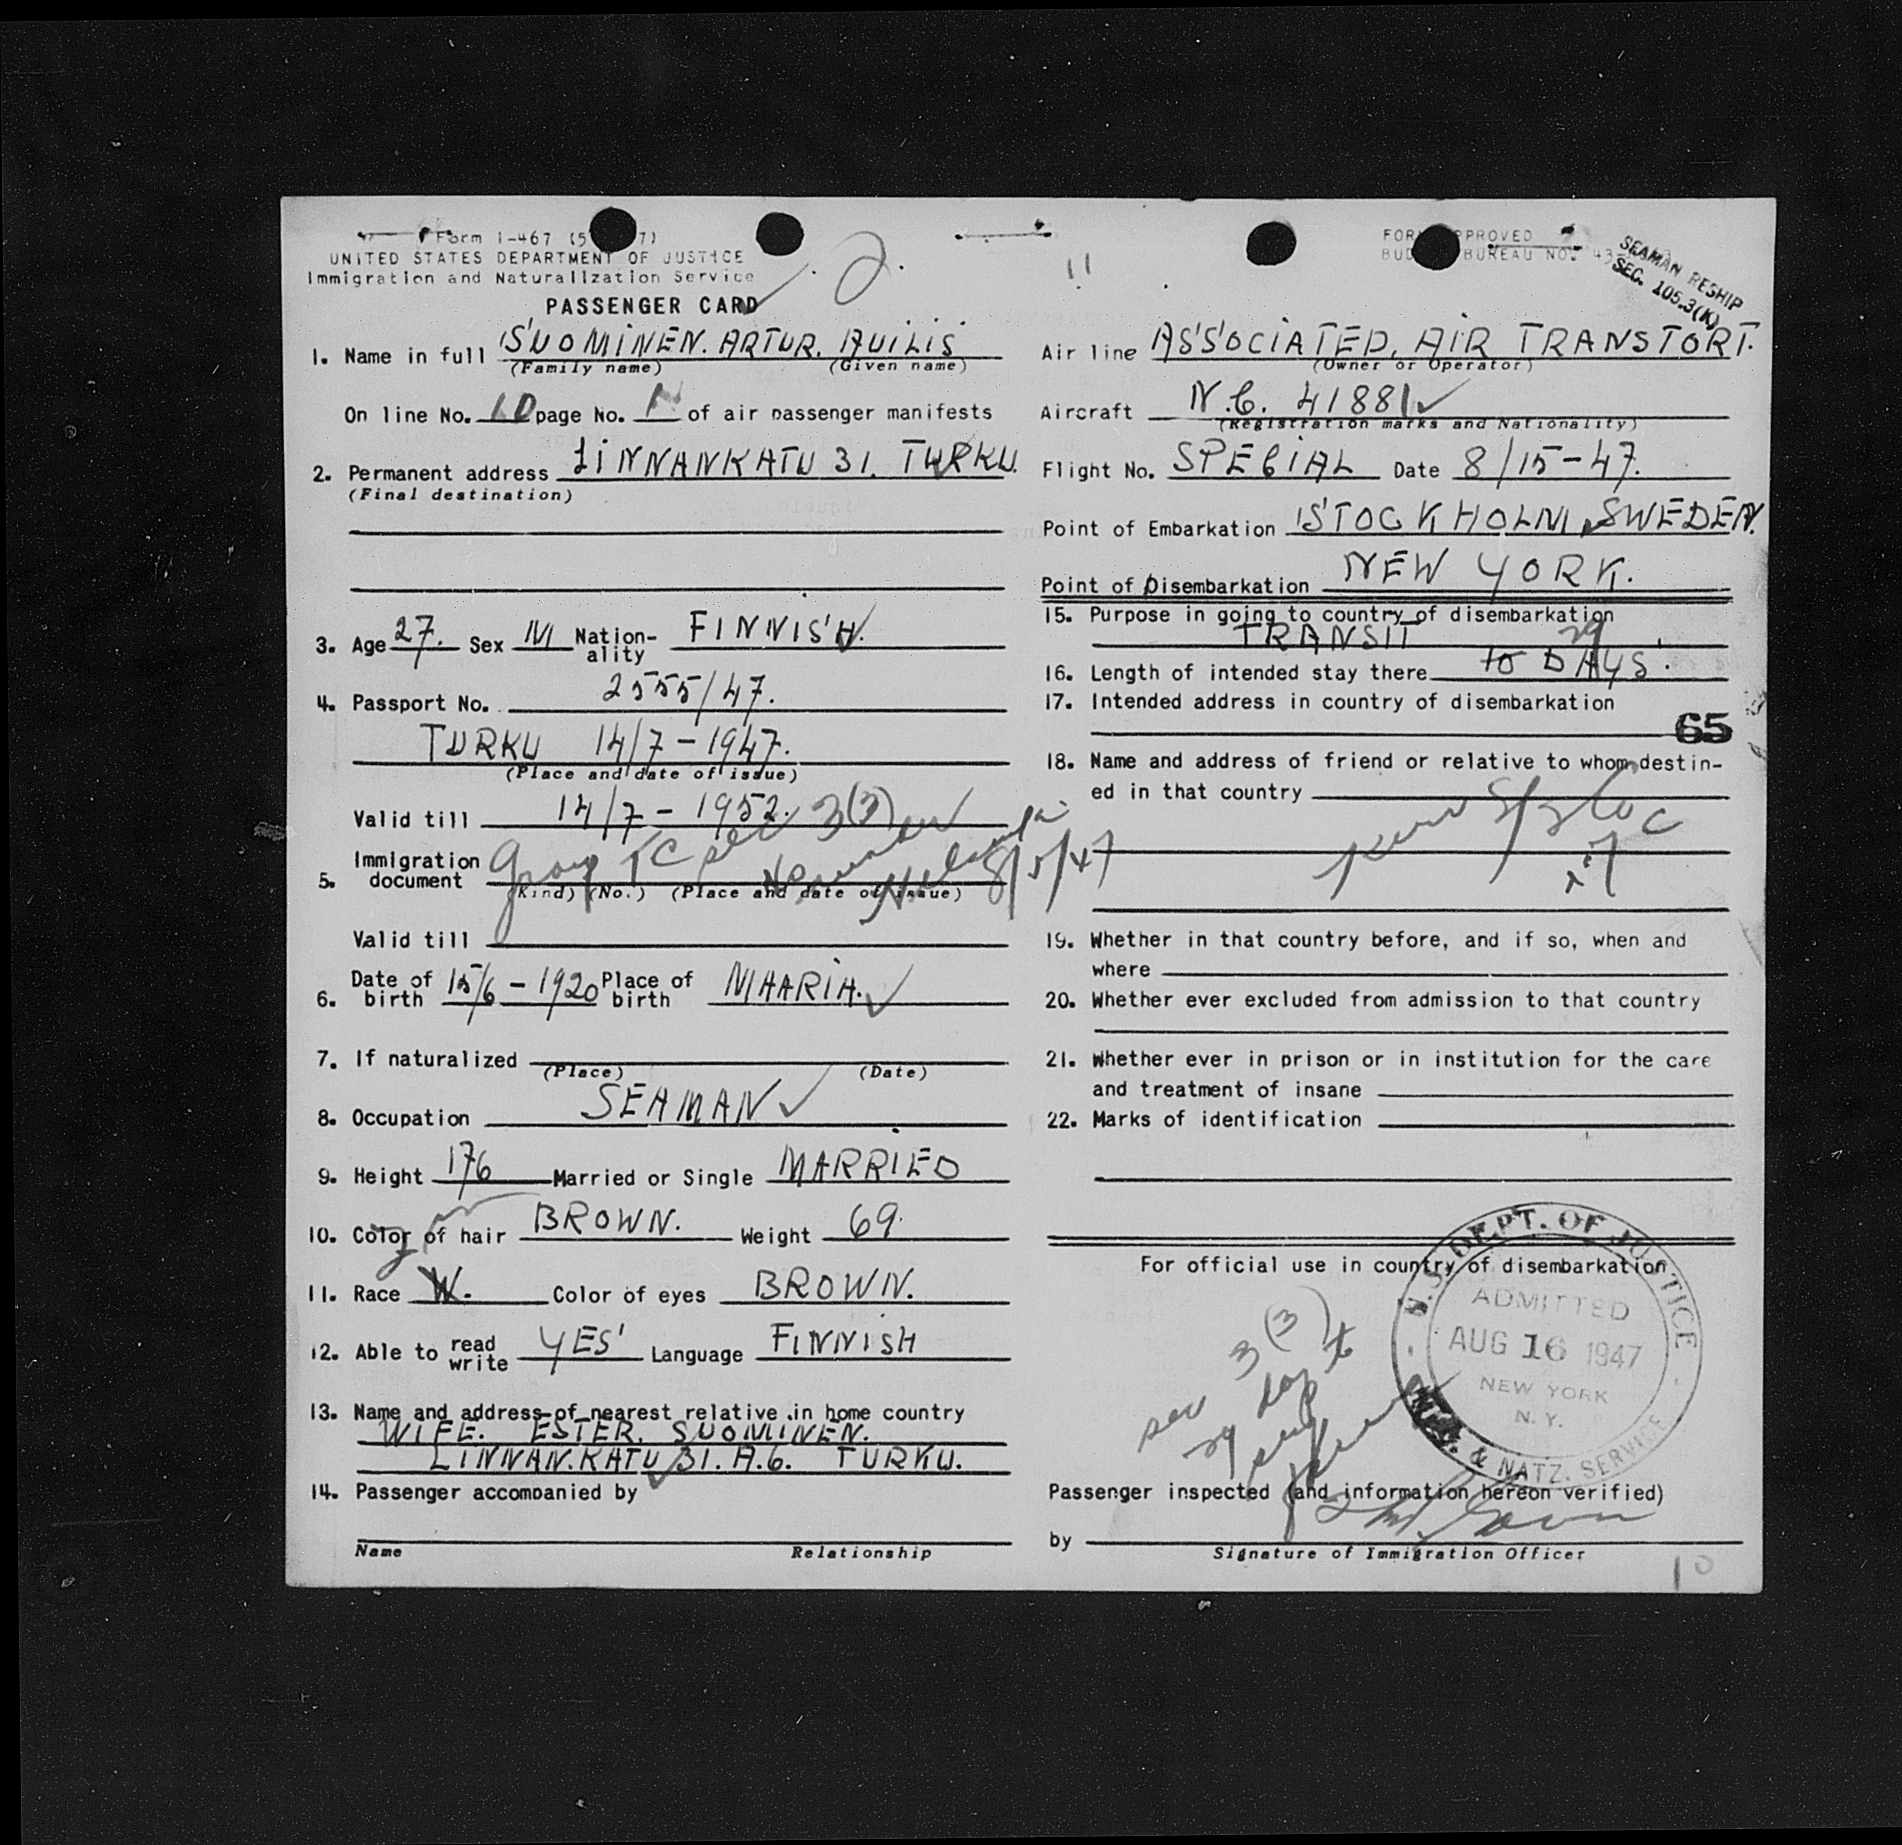 Form I-467 (5 7)
UNITED STATES DEPARTMENT OF JUSTICE
Immigration and Naturalization Service
PASSENGER CARD
2.
11
FOR PPROVED
BUD BUREAU NO. 43
SEAMAN RESHIP
SEC. 105.3(K)
1. Name in full SUOMINEN. ARTUR. AUILIS
(Family name) (Given name)
On line No. 10 page No. of air passenger manifests
2. Permanent address LINNANKATU 31. TURKU.
(Final destination)
3. Age 27. Sex M Nationality FINNISH.
4. Passport No. 2555/47.
TURKU 14/7-1947.
(Place and date of issue)
Valid till 14/7-1952.
5. Immigration document Group TC sec 3(3)
8/5/47
(Kind) (No.) (Place and date of issue)
Valid till
6. Date of birth 15/6-1920 Place of birth MAARIA.
7. If naturalized
(Place) (Date)
8. Occupation SEAMAN
9. Height 176 Married or Single MARRIED
10. Color of hair BROWN. Weight 69.
11. Race W. Color of eyes BROWN.
12. Able to read write YES Language FINNISH
13. Name and address of nearest relative in home country
WIFE. ESTER. SUOMINEN.
LINNAN.KATU 31. A.6. TURKU.
14. Passenger accompanied by
Name Relationship
Air line ASSOCIATED, AIR TRANSTORT.
(Owner or Operator)
Aircraft N.C. 41881
(Registration marks and Nationality)
Flight No. SPECIAL Date 8/15-47.
Point of Embarkation STOCKHOLM, SWEDEN.
Point of Disembarkation NEW YORK.
15. Purpose in going to country of disembarkation
TRANSIT
29
16. Length of intended stay there 10 DAYS.
17. Intended address in country of disembarkation
65
18. Name and address of friend or relative to whom destin-
ed in that country
19. Whether in that country before, and if so, when and
where
20. Whether ever excluded from admission to that country
21. Whether ever in prison or in institution for the care
and treatment of insane
22. Marks of identification
For official use in country of disembarkation
U.S. DEPT. OF JUSTICE
ADMITTED
AUG 16 1947
NEW YORK
N.Y.
IMM. & NATZ. SERVICE
sec 3(3)
29 days
Passenger inspected (and information hereon verified)
by
Signature of Immigration Officer
10